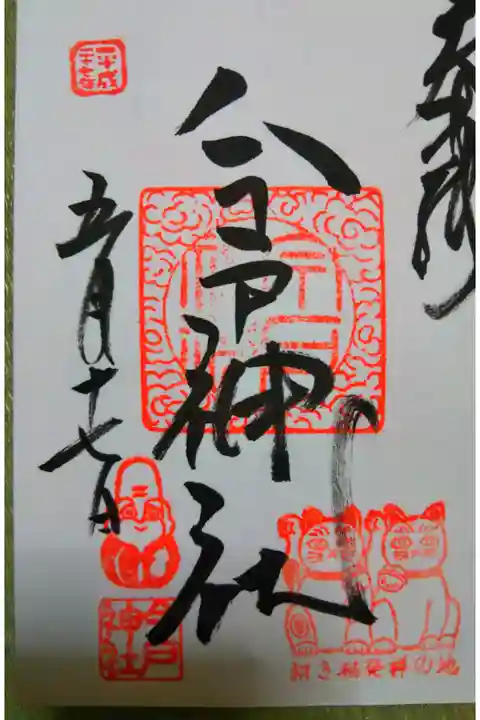 奉拝
今戸神社
平成
二十七年
五月十七日
今戸
神社
招き猫発祥の地